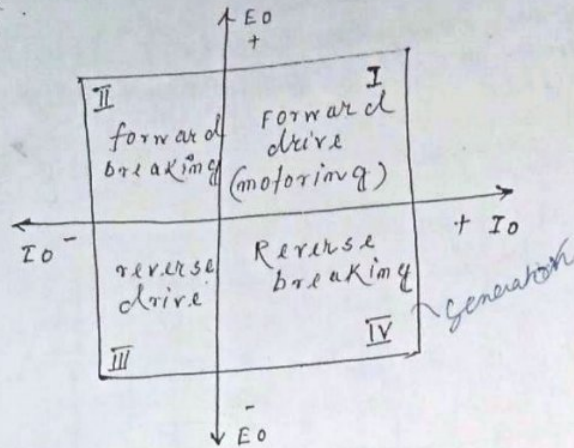 E0
+
II
I
forward
breaking
Forward
drive
(motoring)
I0 -
+ I0
reverse
drive
Reverse
breaking
generation
III
IV
-
E0